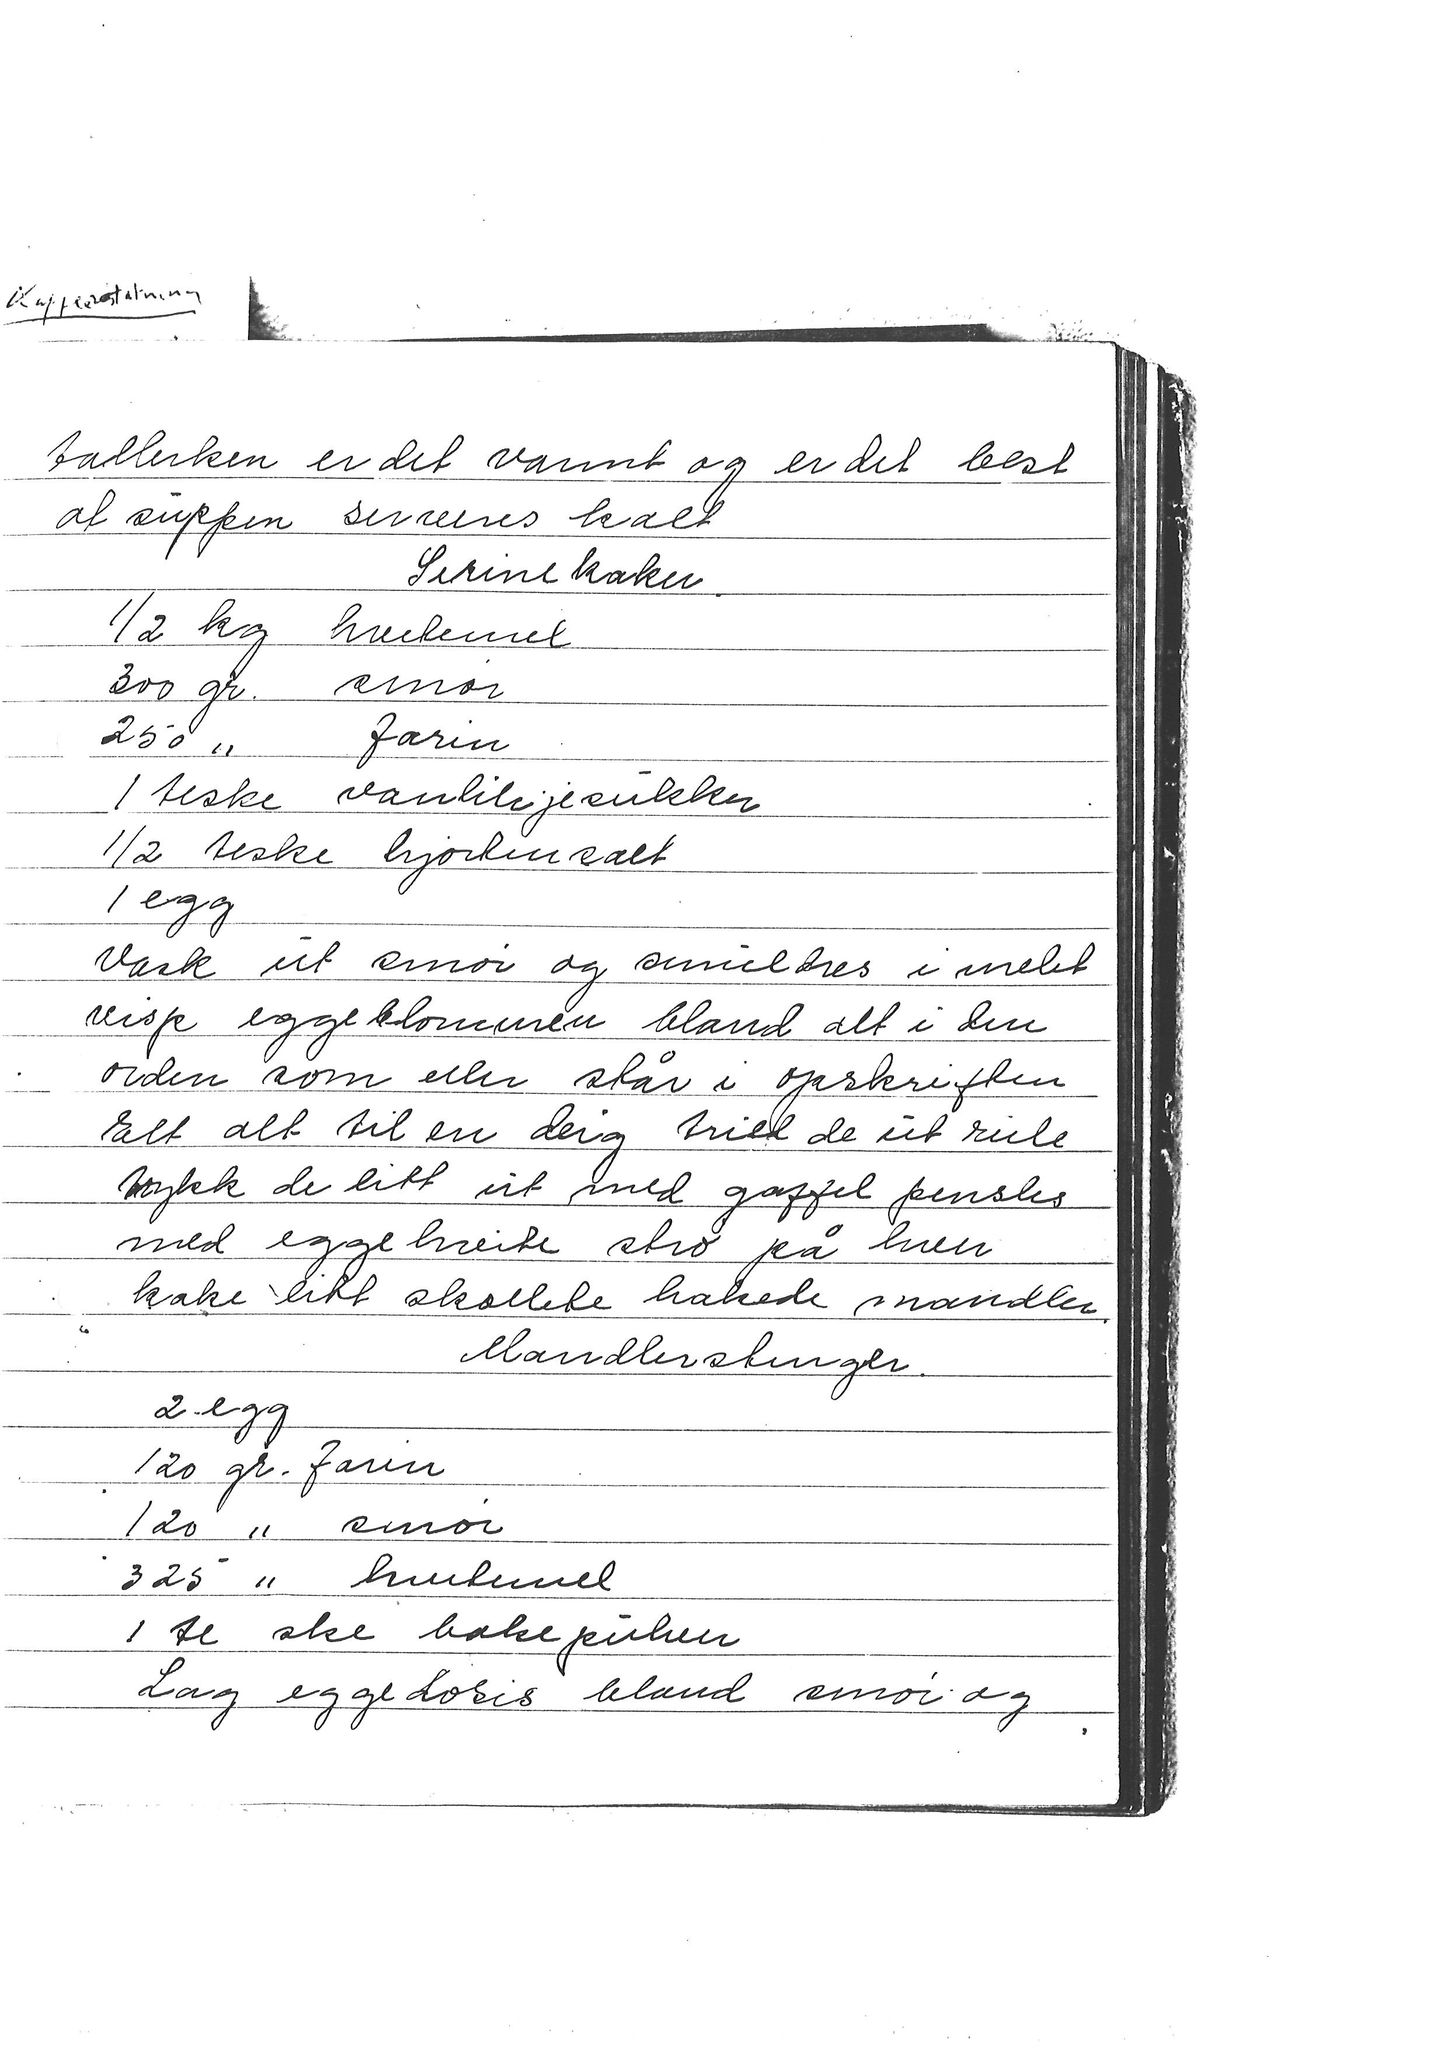 Kaffeerstatning
tallerken er det varmt og er det best
at suppen serveres kalt
Serinekaker.
1/2 kg hvetemel
300 gr. smør
250 " farin
1 teske vanlilijesukker
1/2 teske hjortensalt
1 egg
Vask ut smør og smuldres i melet
visp eggeklommen bland alt i den
orden som eller står i opskriften
Elt alt til en deig trild de ut rule
trykk de litt ut med gaffel pensles
med eggehveite strø på hver
kake litt skollete hakede mandler.
Mandlerstenger.
2 egg
120 gr. farin
120 " smør
325 " hvetemel
1 te ske bakepulver
Lag eggedosis bland smør og